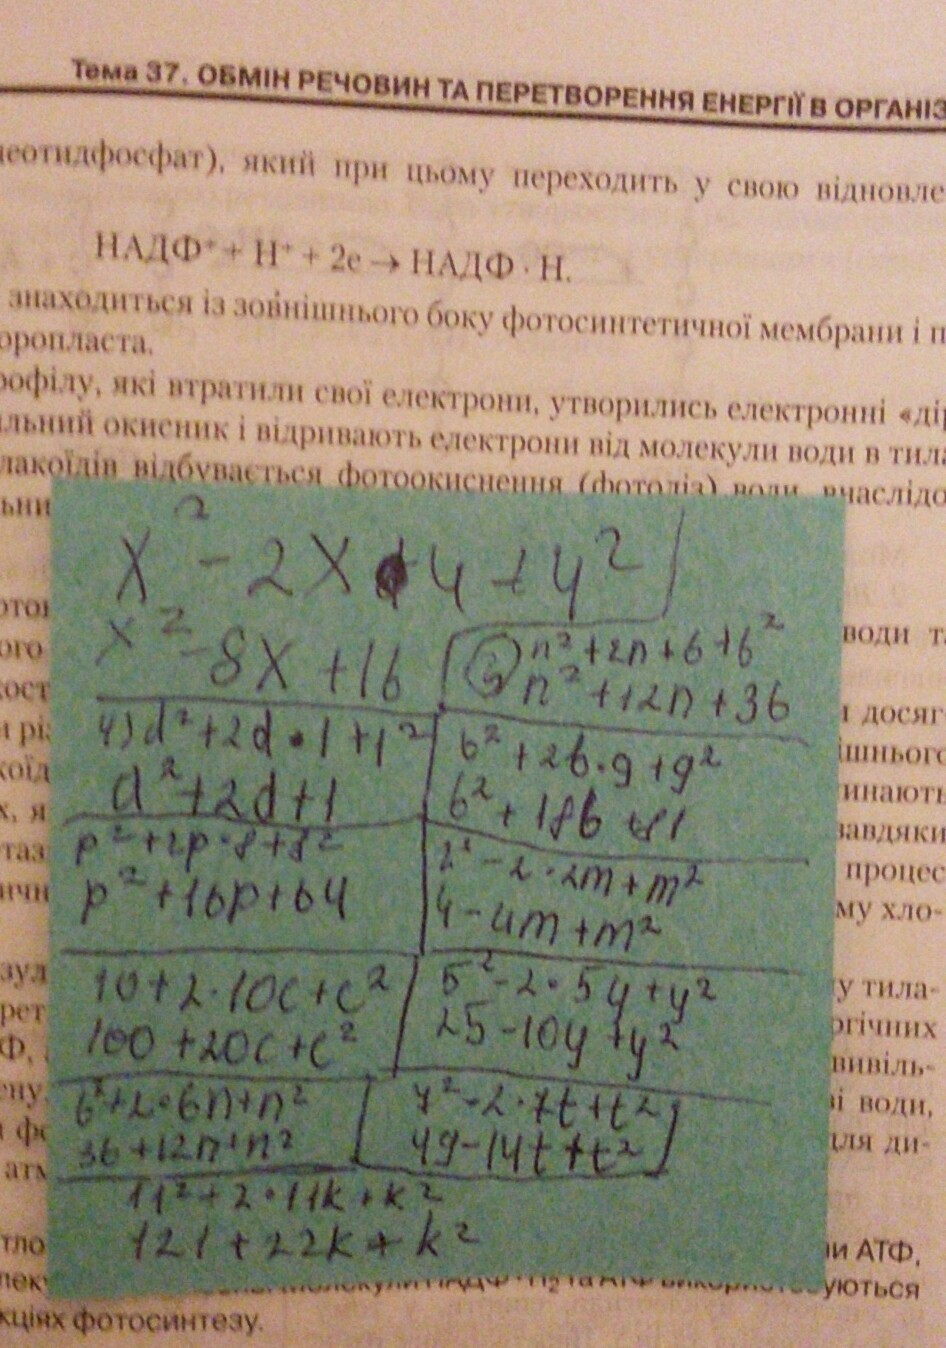 Тема 37. ОБМІН РЕЧОВИН ТА ПЕРЕТВОРЕННЯ ЕНЕРГІЇ В ОРГАНІЗ
неотидфосфат), який при цьому переходить у свою відновле
НАДФ⁺ + Н⁺ + 2е → НАДФ · Н.
знаходиться із зовнішнього боку фотосинтетичної мембрани і п
оропласта.
рофілу, які втратили свої електрони, утворились електронні «дір
льний окисник і відривають електрони від молекули води в тила
лакоїдів відбувається фотоокиснення (фотоліз) води, внаслідо
ьни
x² - 2x · 4 + 4²
x² - 8x + 16
n² + 2n + 6 + 6²
n² + 12n + 36
4) d² + 2d · 1 + 1²
d² + 2d + 1
b² + 2b · 9 + 9²
b² + 18b + 81
p² + 2p · 8 + 8²
p² + 16p + 64
2² - 2 · 2m + m²
4 - 4m + m²
10 + 2 · 10c + c²
100 + 20c + c²
5² - 2 · 5y + y²
25 - 10y + y²
6² + 2 · 6n + n²
36 + 12n + n²
7² - 2 · 7t + t²
49 - 14t + t²
11² + 2 · 11k + k²
121 + 22k + k²
води т
досяг-
ішнього
инають
завдяки
процес
му хло-
у тила-
ргічних
вивіль-
і води,
для ди-
атм
и АТФ,
уються
кціях фотосинтезу.